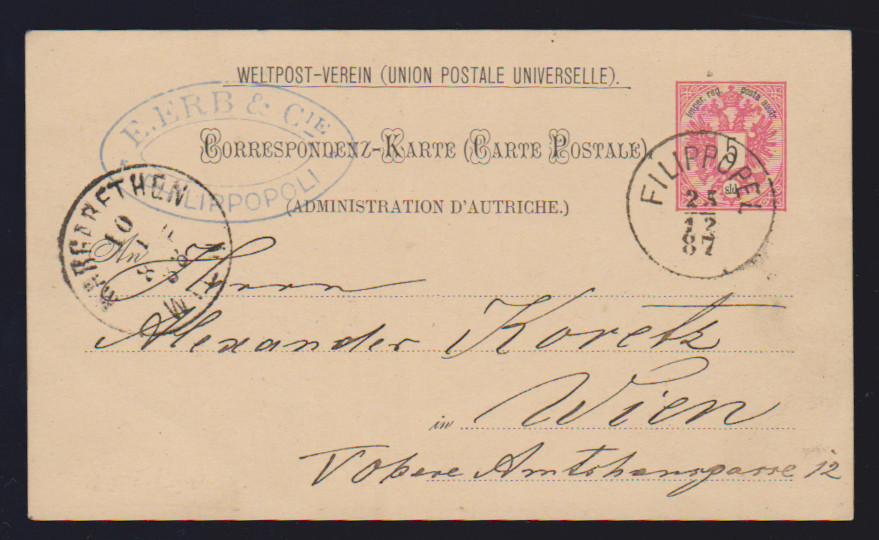 WELTPOST-VEREIN (UNION POSTALE UNIVERSELLE).
E. ERB & CIE
PHILIPPOPOLI
CORRESPONDENZ-KARTE (CARTE POSTALE)
(ADMINISTRATION D'AUTRICHE.)
5
sld
FILIPPOPEL
25
12
87
MARGARETHEN
WIEN
10
1
An Herrn
Alexander Koretz
in Wien
V Obere Amtshausgasse 12